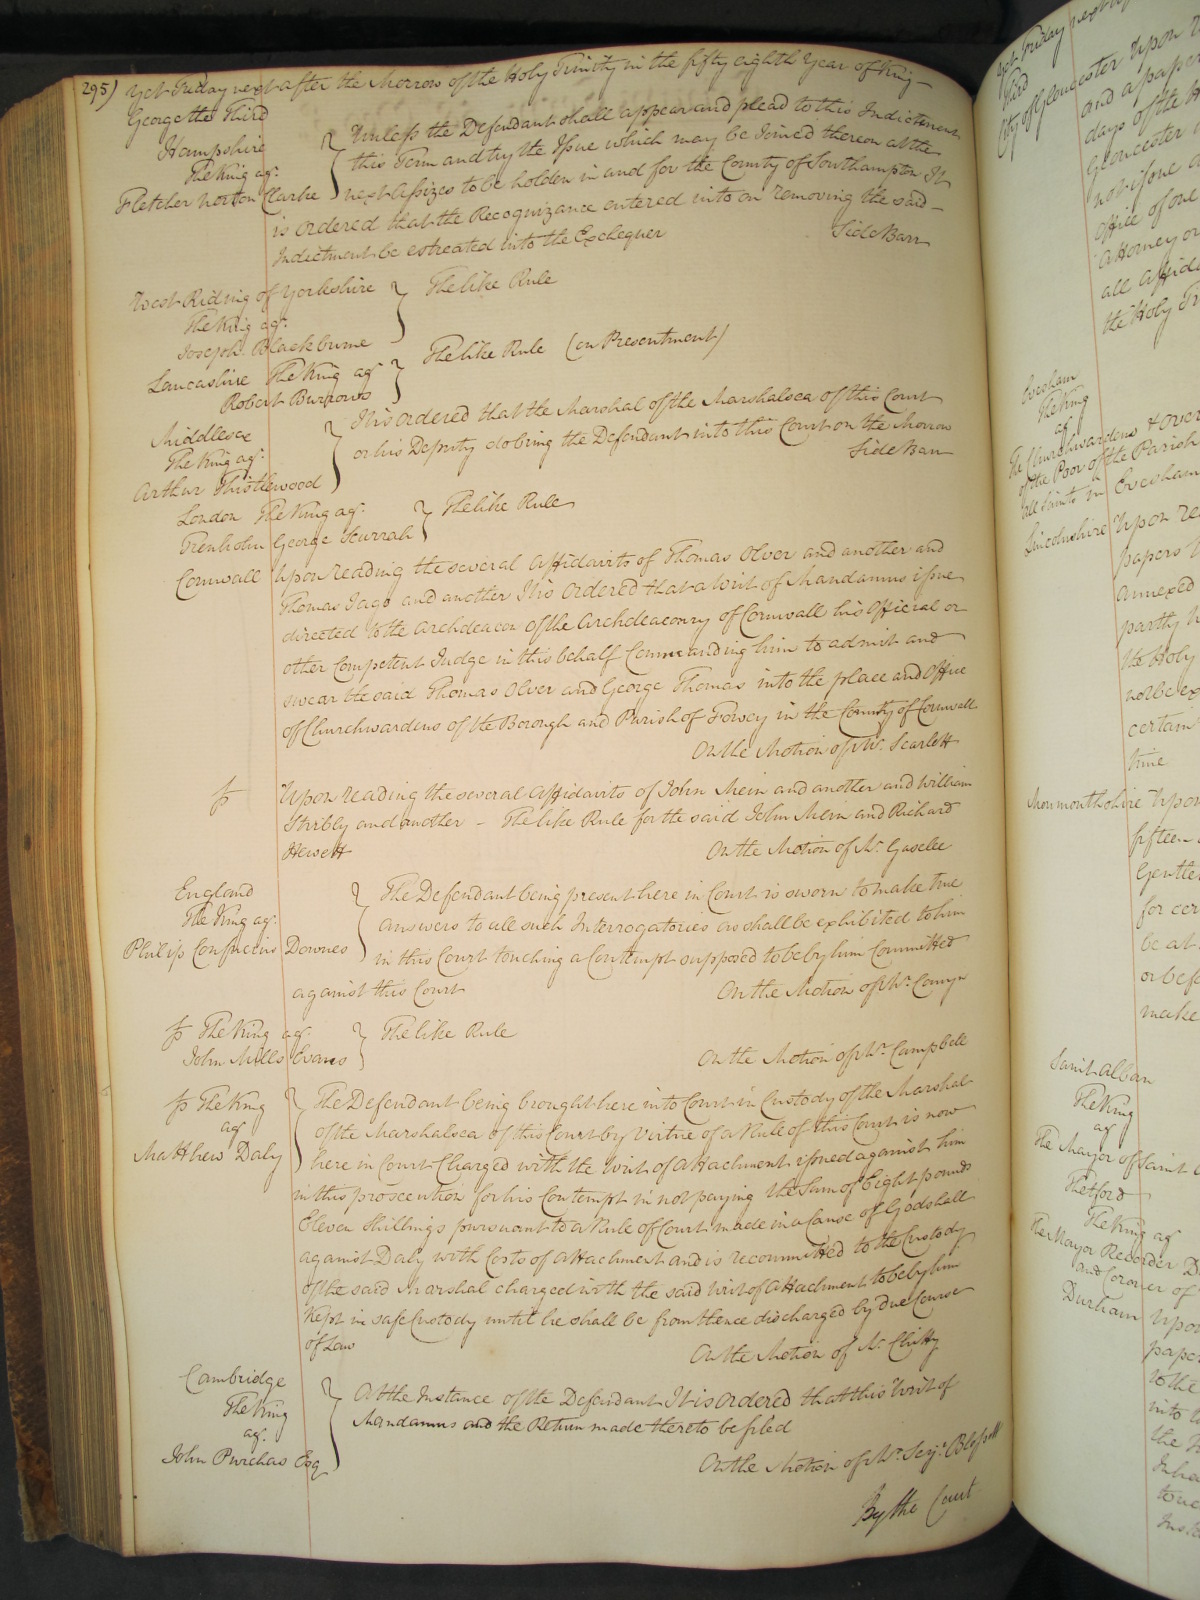 295) Yet Friday next after the Morrow of the Holy Trinity in the fifty eighth Year of King
George the Third
Hampshire
The King agt.
Fletcher Norton Clarke
Unless the Defendant shall appear and plead to this Indictment
this Term and try the Issue which may be Joined thereon at the
next Assizes to be holden in and for the County of Southampton It
is ordered that the Recognizance entered into on removing the said
Indictment be estreated into the Exchequer
Side Barr
West Riding of Yorkshire
The King agt.
Joseph Blackburne
The like Rule
Lancashire The King agt
Robert Burrows
The like Rule (on Presentment)
Middlesex
The King agt.
Arthur Thistlewood
It is ordered that the Marshal of the Marshalsea of this Court
or his Deputy do bring the Defendant into this Court on the Morrow
Side Barr
London The King agt.
Trenholm George Scurrah
The like Rule
Cornwall Upon reading the several Affidavits of Thomas Olver and another and
Thomas Jago and another It is Ordered that a Writ of Mandamus issue
directed to the Archdeacon of the Archdeaconry of Cornwall his Official or
other Competent Judge in this behalf Commanding him to admit and
swear the said Thomas Olver and George Thomas into the place and Office
of Churchwardens of the Borough and Parish of Fowey in the County of Cornwall
On the Motion of Mr. Scarlett
Upon reading the several Affidavits of John Mein and another and William
Stribly and another – The like Rule for the said John Mein and Richard
Hewett
On the Motion of Mr. Gaselee
England
The King agt.
Philip Confucius Downes
The Defendant being present here in Court is sworn to make true
answers to all such Interrogatories as shall be exhibited to him
in this Court touching a Contempt supposed to be by him Committed
against this Court
On the Motion of Mr. Comyn
The King agt.
John Mills Evans
The like Rule
On the Motion of Mr. Campbell
The King
agt
Matthew Daly
The Defendant being brought here into Court in Custody of the Marshal
of the Marshalsea of this Court by Virtue of a Rule of this Court is now
here in Court Charged with the Writ of Attachment issued against him
in this prosecution for his Contempt in not paying the Sum of Eight pounds
Eleven Shillings pursuant to a Rule of Court made in a Cause of Godshall
against Daly with Costs of Attachment and is recommitted to the Custody
of the said Marshal charged with the said Writ of Attachment to be by him
Kept in safe Custody until he shall be from thence discharged by due Course
of Law
On the Motion of Mr. Chitty
Cambridge
The King
agt.
John Purchas Esq
At the Instance of the Defendant It is Ordered that this Writ of
Mandamus and the Return made thereto be filed
On the Motion of Mr. Serjt. Blossett
By the Court
Yet Friday next
Third
City of Gloucester Upon
and a paper
days of the
Gloucester
not issue
Office of one
Attorney or
all Affida
the Holy Tr
Evesham
The King
agt
The Churchwardens & Over
of the Poor of the Parish
all Saints in Evesham
Lincolnshire Upon rea
papers
annexed
partly
the Holy
not be ex
certain
time
Monmouthshire Upon
fifteen
Gentle
for cer
be at
or befo
make
Saint Alban
The King
agt
The Mayor of Saint
Thetford
The King agt
The Mayor Recorder
and Coroner of
Durham Upon
paper
to the
into
the